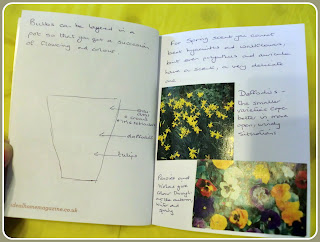 Bulbs can be layered in a
pot so that you get a succession
of flowering and colour
daffodils
tulips
idealhomemagazine.co.uk
For Spring scent you cannot
beat hyacinths and wallflowers,
but even polyanthus and auriculas
have a scent, a very delicate
one
Daffodils -
the smaller
varieties cope
better in more
open, windy
situations
Pansies and
Violas give
colour through
the autumn,
winter and
spring